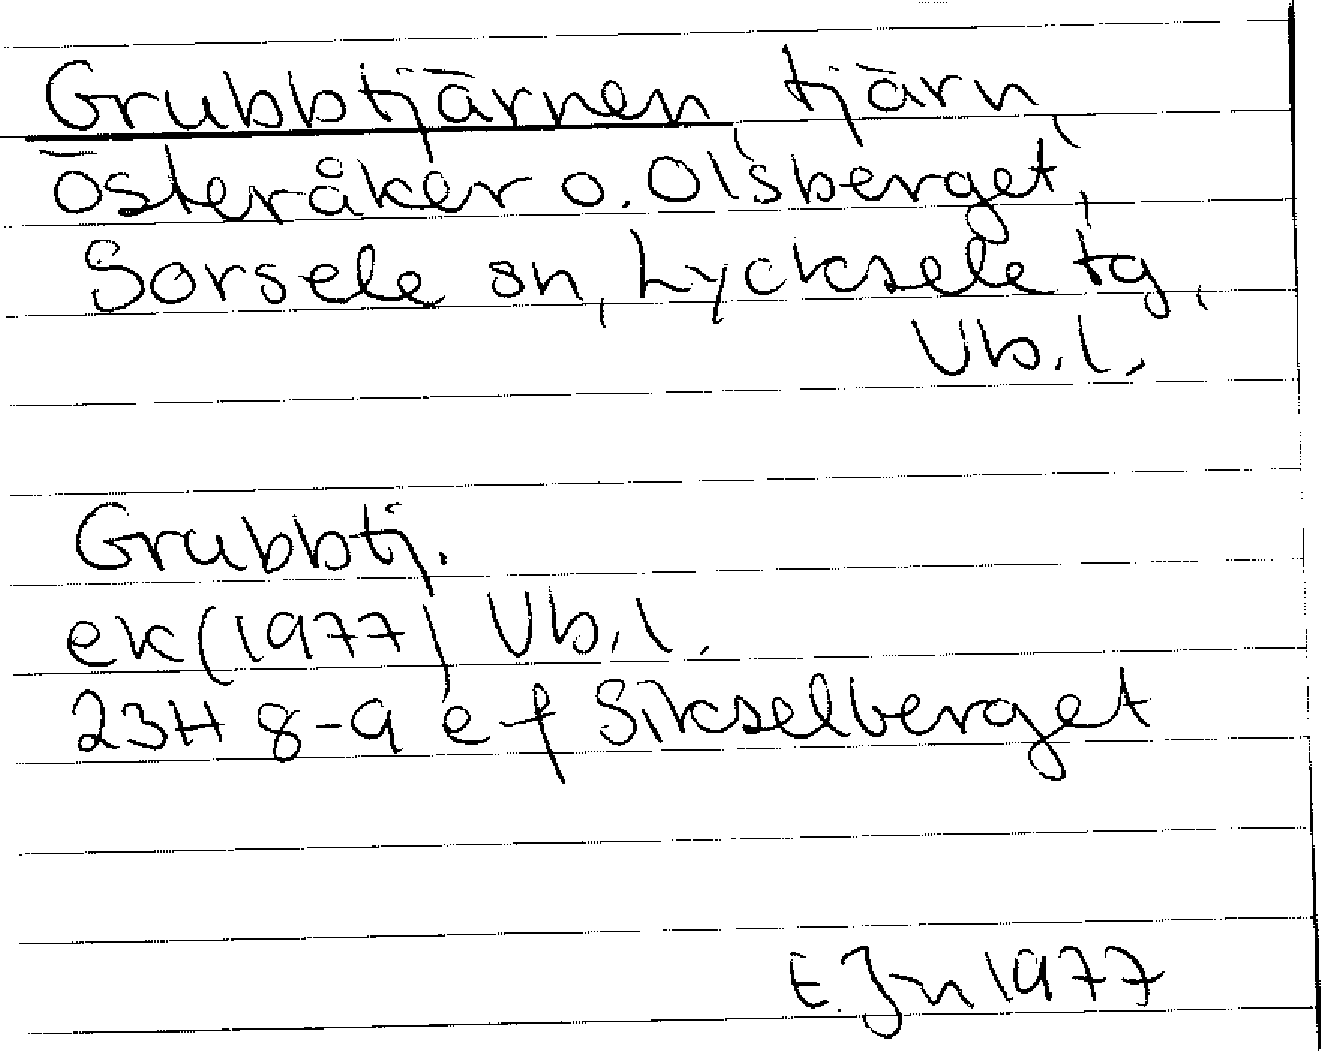 Grubbtjärnen, tjärn,
Österåker o. Olsberget,
Sorsele sn, Lycksele tg,
Vb.l.
Grubbtj.
ek (1977) Vb.l.
23H 8-9 e-f Sikselberget
E.Jn 1977